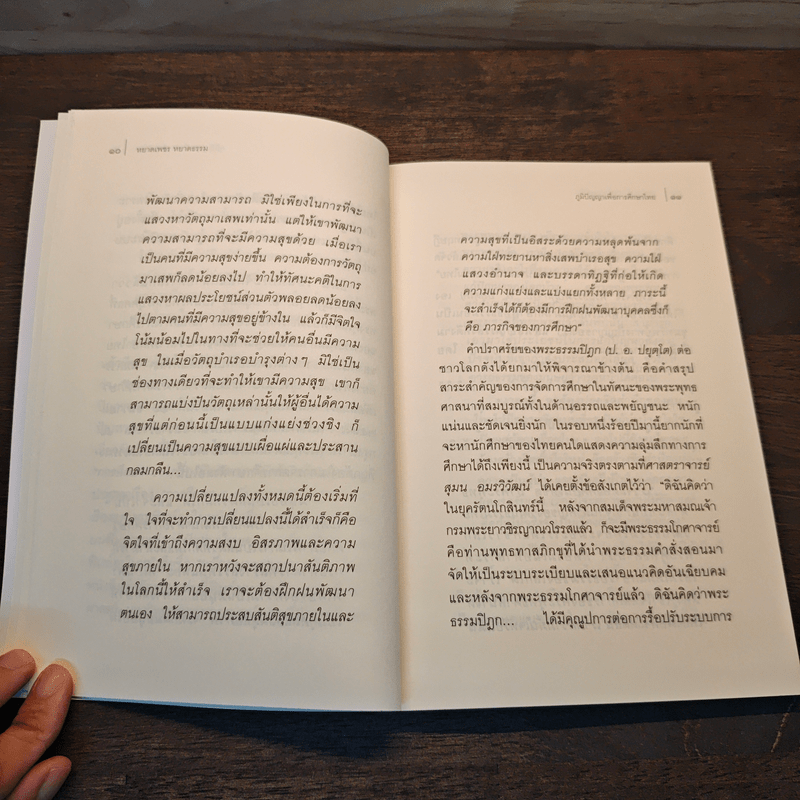 ๑๐ หยาดเพชร หยาดธรรม
พัฒนาความสามารถ มิใช่เพียงในการที่จะ
แสวงหาวัตถุมาเสพเท่านั้น แต่ให้เขาพัฒนา
ความสามารถที่จะมีความสุขด้วย เมื่อเรา
เป็นคนที่มีความสุขง่ายขึ้น ความต้องการวัตถุ
มาเสพก็ลดน้อยลงไป ทำให้ทัศนะคติในการ
แสวงหาผลประโยชน์ส่วนตัวพลอยลดน้อยลง
ไปตามคนที่มีความสุขอยู่ข้างใน แล้วก็มีจิตใจ
โน้มน้อมไปในทางที่จะช่วยให้คนอื่นมีความ
สุข ในเมื่อวัตถุบำเรอบำรุงต่าง ๆ มิใช่เป็น
ช่องทางเดียวที่จะทำให้เขามีความสุข เขาก็
สามารถแบ่งปันวัตถุเหล่านั้นให้ผู้อื่นได้ความ
สุขที่แต่ก่อนนี้เป็นแบบแก่งแย่งช่วงชิง ก็
เปลี่ยนเป็นความสุขแบบเผื่อแผ่และประสาน
กลมกลืน...
ความเปลี่ยนแปลงทั้งหมดนี้ต้องเริ่มที่
ใจ ใจที่จะทำการเปลี่ยนแปลงนี้ได้สำเร็จก็คือ
จิตใจที่เข้าถึงความสงบ อิสรภาพและความ
สุขภายใน หากเราหวังจะสถาปนาสันติภาพ
ในโลกนี้ให้สำเร็จ เราจะต้องฝึกฝนพัฒนา
ตนเอง ให้สามารถประสบสันติสุขภายในและ
ภูมิปัญญาเพื่อการศึกษาไทย ๑๑
ความสุขที่เป็นอิสระด้วยความหลุดพ้นจาก
ความใฝ่ทะยานหาสิ่งเสพบำเรอสุข ความใฝ่
แสวงอำนาจ และบรรดาทิฏฐิที่ก่อให้เกิด
ความแก่งแย่งและแบ่งแยกทั้งหลาย ภาระนี้
จะสำเร็จได้ก็ต้องมีการฝึกฝนพัฒนาบุคคลซึ่งก็
คือ ภารกิจของการศึกษา"
คำปราศรัยของพระธรรมปิฎก (ป. อ. ปยุตฺโต) ต่อ
ชาวโลกดังได้ยกมาให้พิจารณาข้างต้น คือคำสรุป
สาระสำคัญของการจัดการศึกษาในทัศนะของพระพุทธ
ศาสนาที่สมบูรณ์ทั้งในด้านอรรถและพยัญชนะ หนัก
แน่นและชัดเจนยิ่งนัก ในรอบหนึ่งร้อยปีมานี้ยากนักที่
จะหานักศึกษาของไทยคนใดแสดงความลุ่มลึกทางการ
ศึกษาได้ถึงเพียงนี้ เป็นความจริงตรงตามที่ศาสตราจารย์
สุมน อมรวิวัฒน์ ได้เคยตั้งข้อสังเกตไว้ว่า "ดิฉันคิดว่า
ในยุครัตนโกสินทร์นี้ หลังจากสมเด็จพระมหาสมณเจ้า
กรมพระยาวชิรญาณวโรรสแล้ว ก็จะมีพระธรรมโกศาจารย์
คือท่านพุทธทาสภิกขุที่ได้นำพระธรรมคำสั่งสอนมา
จัดให้เป็นระบบระเบียบและเสนอแนวคิดอันเฉียบคม
และหลังจากพระธรรมโกศาจารย์แล้ว ดิฉันคิดว่าพระ
ธรรมปิฎก... ได้มีคุณูปการต่อการรื้อปรับระบบการ